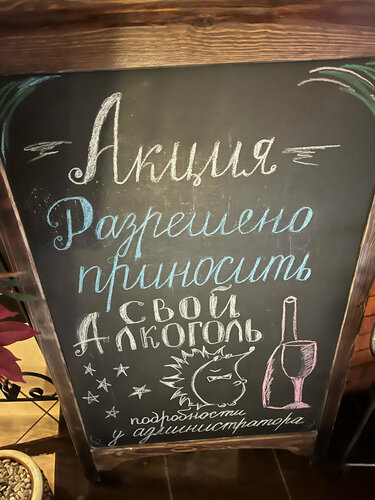 Акция
Разрешено
приносить
свой
Алкоголь
подробности
у администратора